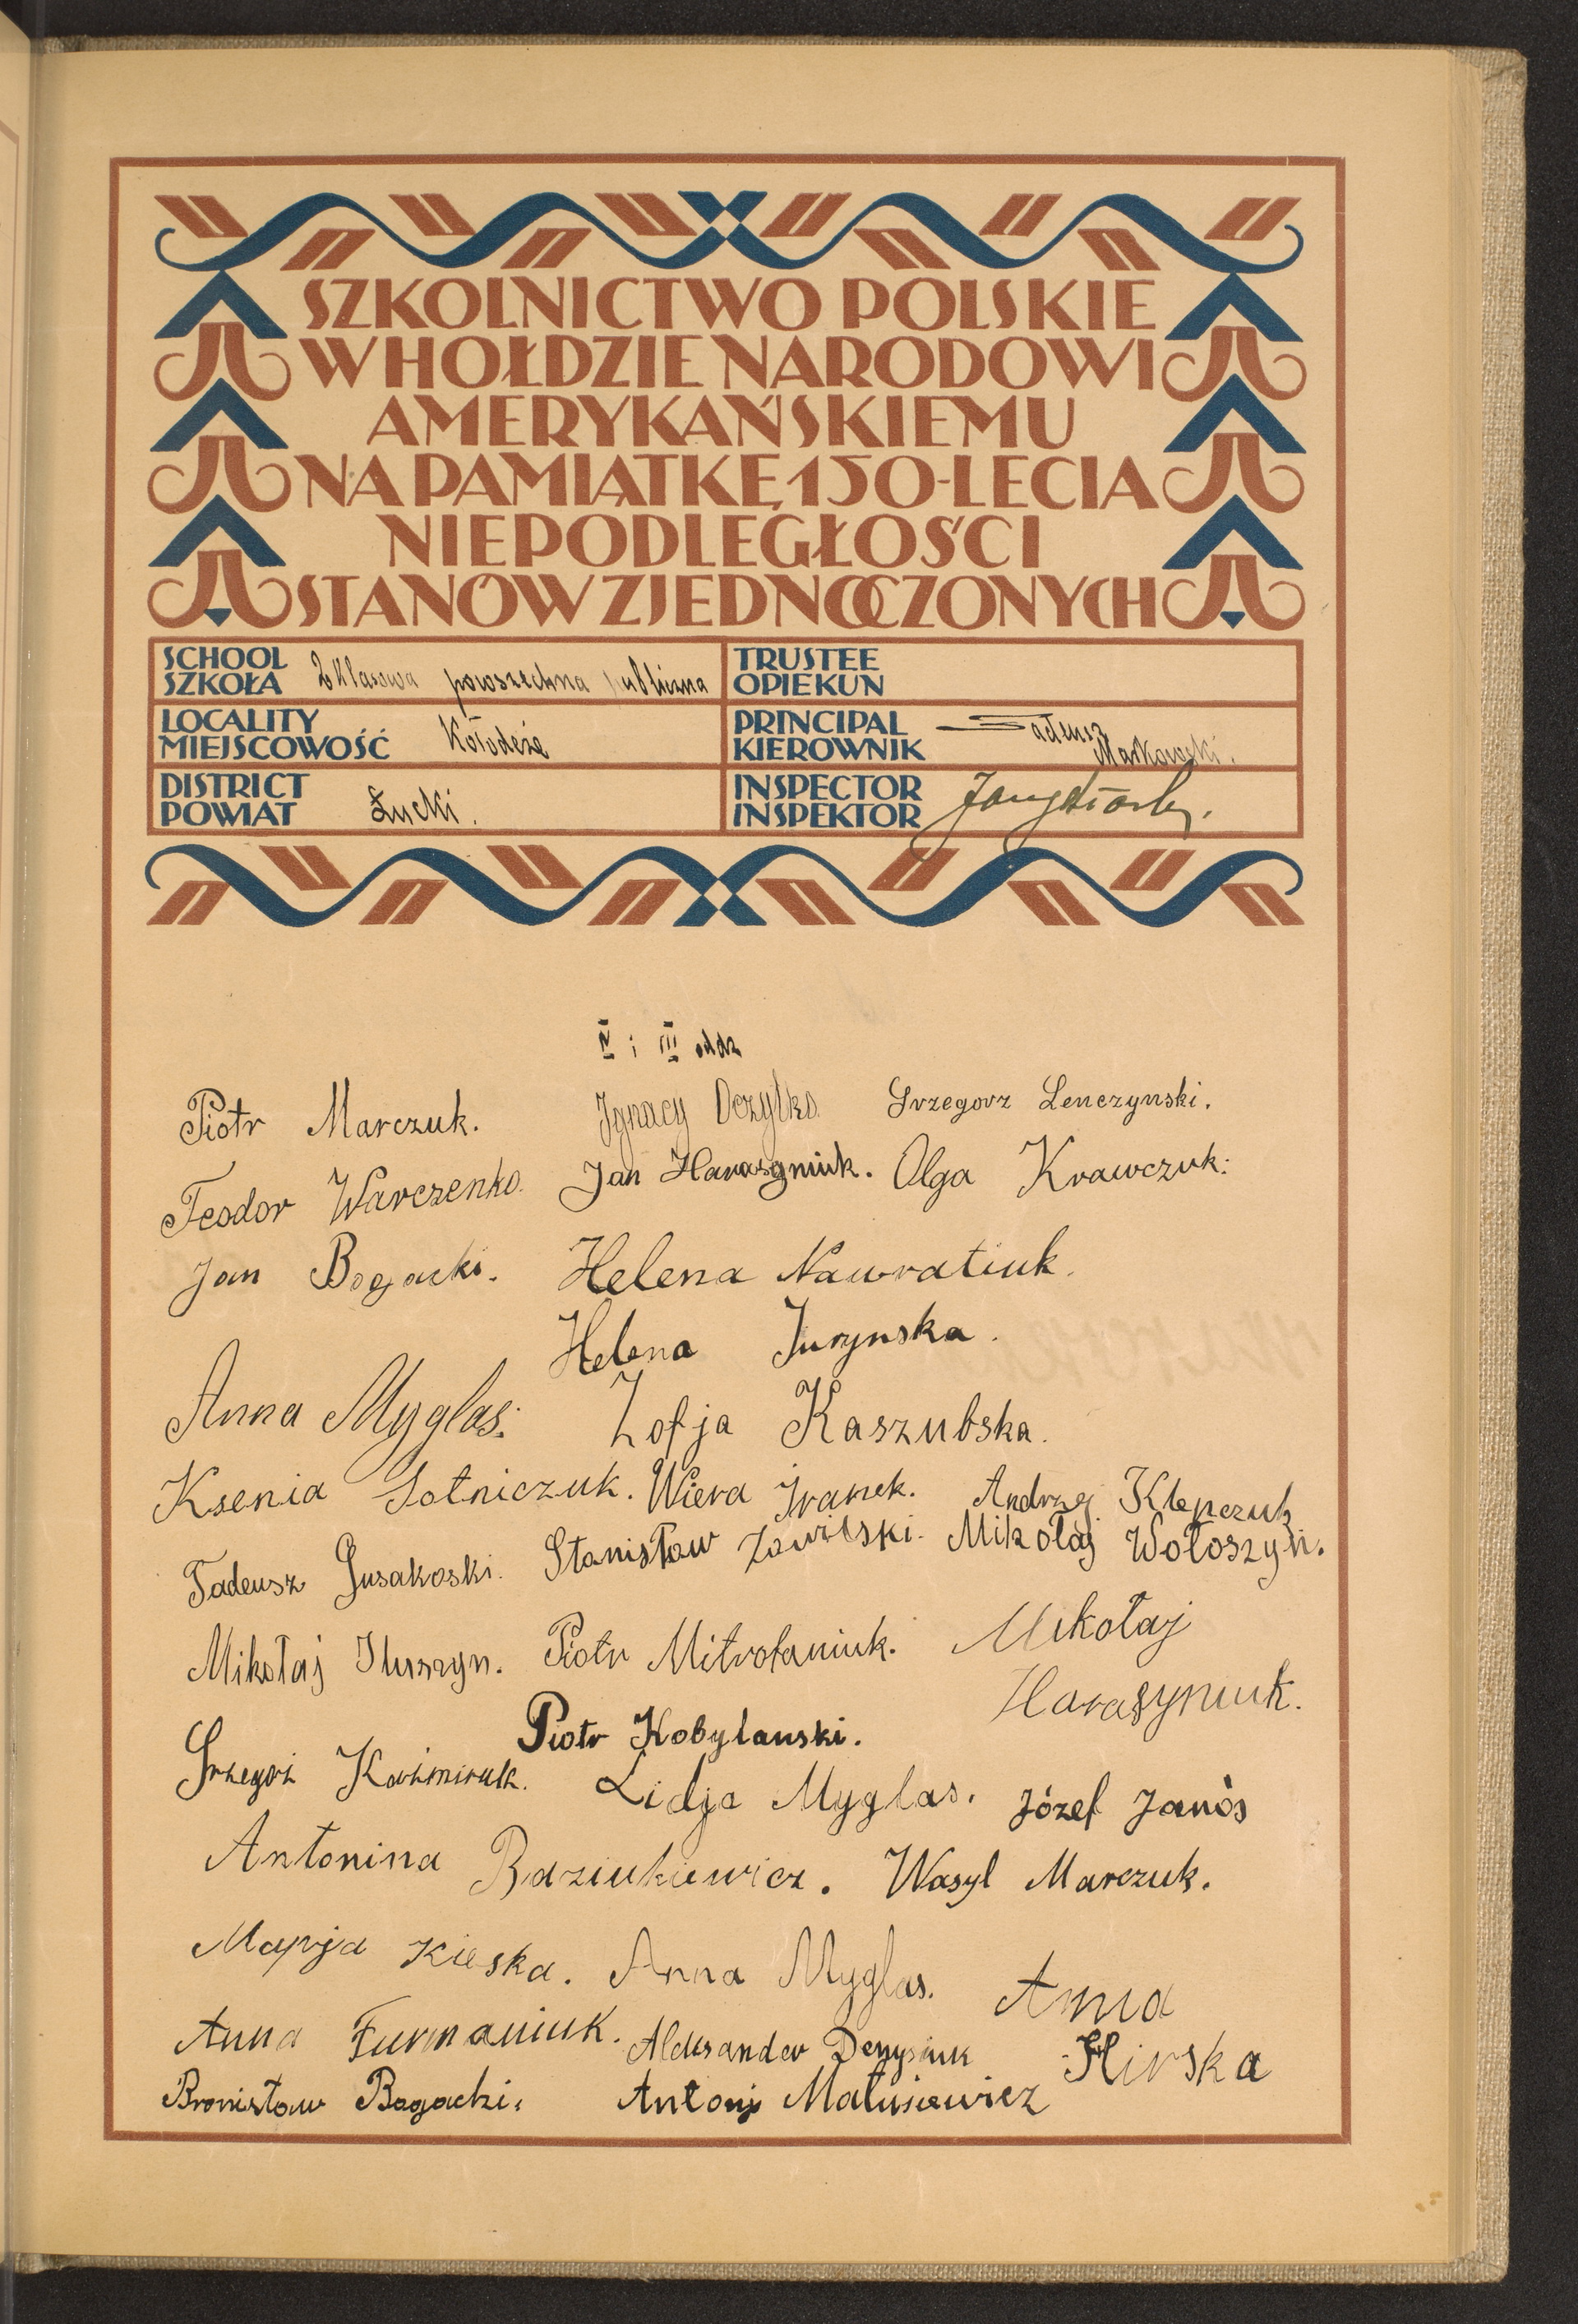 SZKOLNICTWO POLSKIE
W HOŁDZIE NARODOWI
AMERYKAŃSKIEMU
NA PAMIĄTKĘ 150-LECIA
NIEPODLEGŁOŚCI
STANÓW ZJEDNOCZONYCH
SCHOOL
SZKOŁA 2 klasowa powszechna publiczna
TRUSTEE
OPIEKUN
LOCALITY
MIEJSCOWOŚĆ Kołodeże
PRINCIPAL
KIEROWNIK Tadeusz Markowski.
DISTRICT
POWIAT Łucki.
INSPECTOR
INSPEKTOR
IV i III oddz
Piotr Marczuk. Ignacy Oczytko Grzegorz Lenczynski.
Teodor Warczenko. Jan Harasyniuk. Olga Krawczuk:
Jan Bogacki. Helena Nawratiuk.
Helena Juzynska.
Anna Myglas: Zofja Kaszubska.
Ksenia Sotniczuk. Wiera Iranek. Andrzej Klepczuk
Tadeusz Gusakoski. Stanisław Zawilski. Mikołaj Wołoszyn.
Mikołaj Iluszyn. Piotr Mitrofaniuk. Mikołaj
Harasyniuk.
Piotr Kobylanski.
Grzegorz Kaźmiruk. Lidja Myglas. Józef Janós
Antonina Baziukiewicz. Wasyl Marczuk.
Maryja Kieska. Anna Myglas. Anna
Hirska
Anna Furmaniuk. Aleksander Denysiuk
Bronisław Bogacki. Antoni Matusiewicz